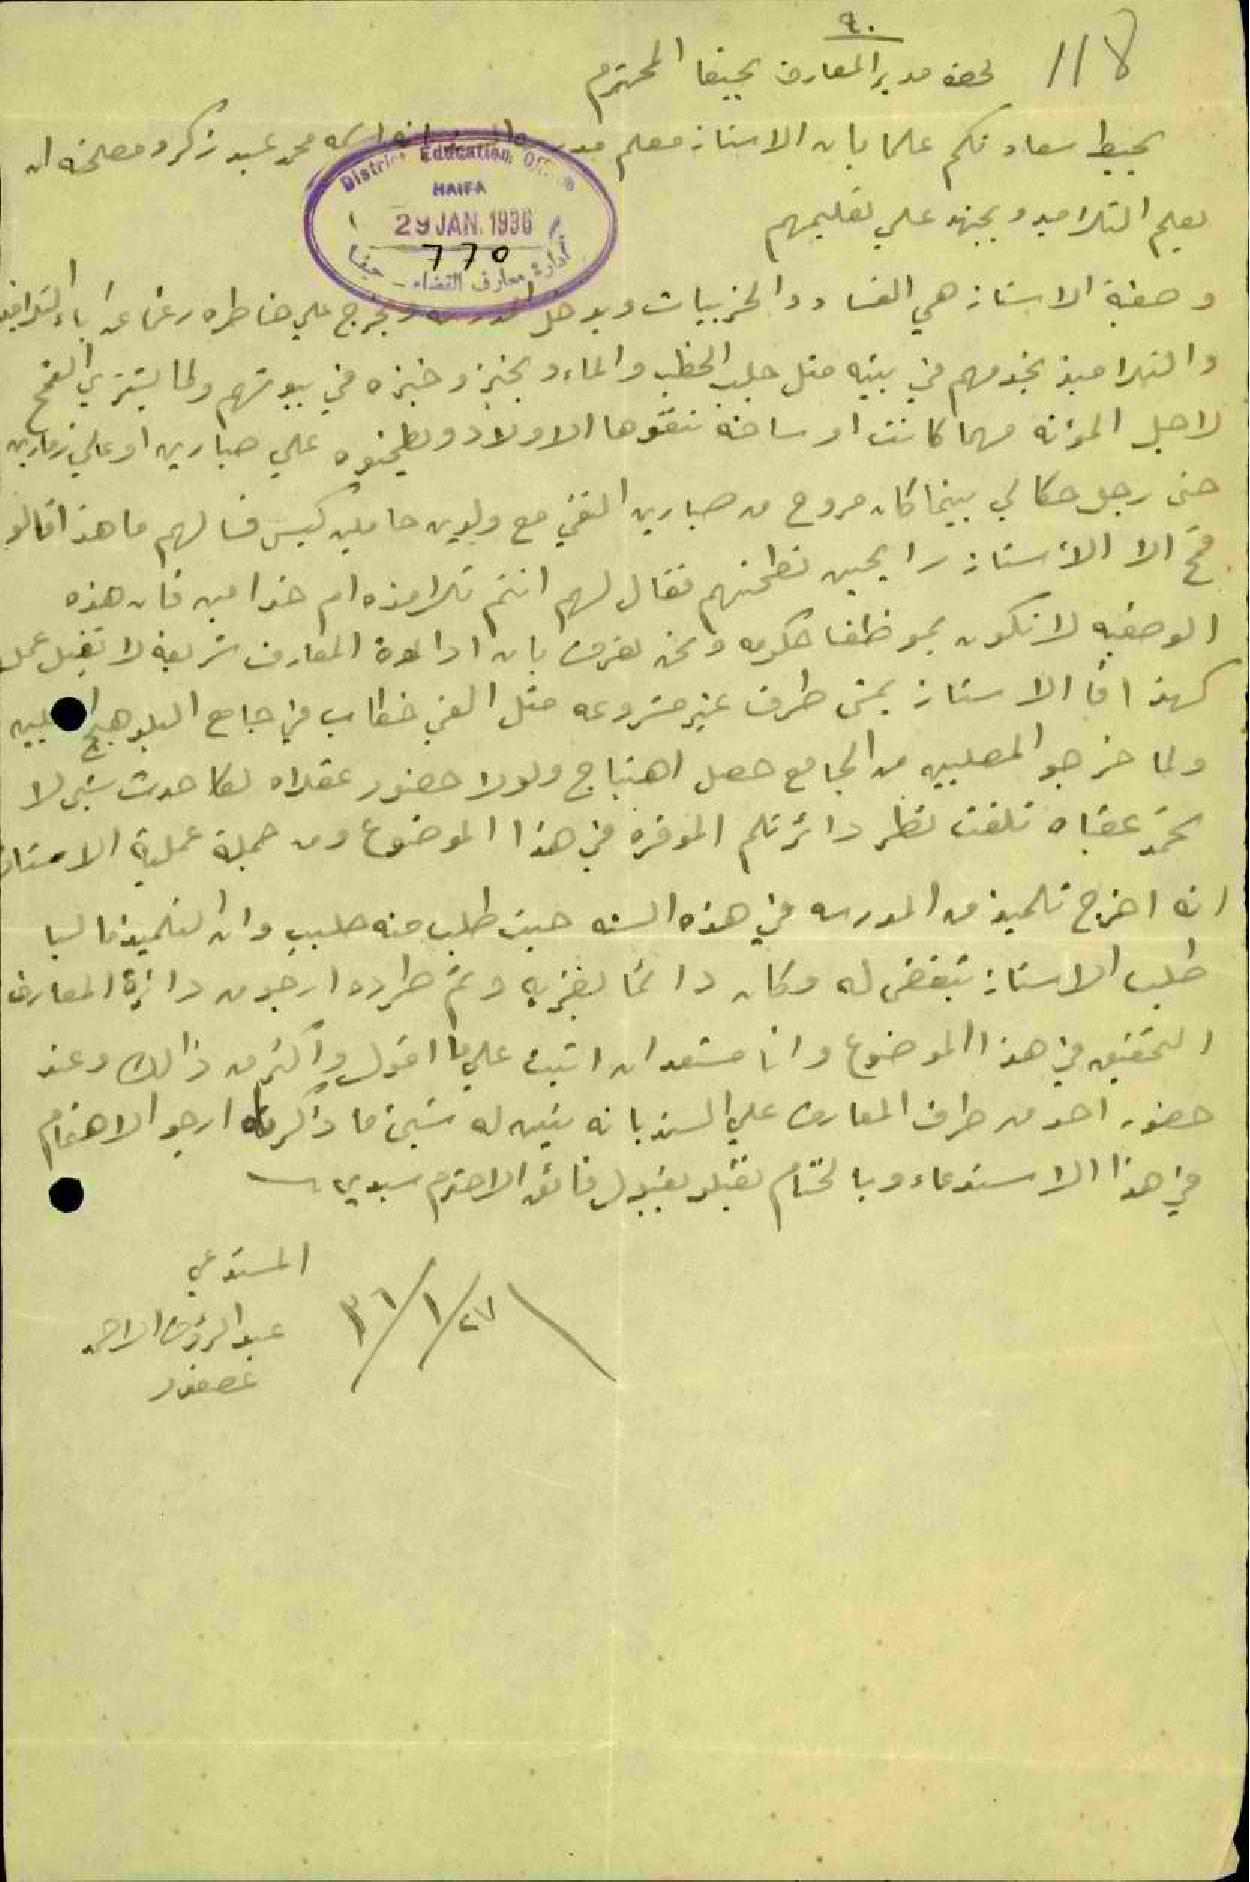 ٩٠
118
لحضة مدير المعارف بحيفا المحترم
يحيط سعادتكم علما بان الاستاز معلم محمد عبد زكرو مصلحته ان
يعلم التلاميد ويجتهد علي تعليمهم
District Education Office
HAIFA
29 JAN. 1936
770
أدارة معارف القضاء - حيفا
وصفة الاستاز هي الفساد والحزبيات ويدخل المدرسه ويخرج علي خاطره رغما عن اباء التلاميذ
والتلاميذ يخدمهم في بيته مثل جلب الحطب والماء ويخبزو خبزه في بيوتهم ولما يشتري القمح
لاجل المؤنه مهما كانت اوساخه تنقوها الاولاد ويطحنوه علي صبارين او علي زمارين
حتى رجل حكالي بينما كان مروح من صبارين التقي مع ولدين حاملين كيس فسالهم ما هذا قالو
قمح الا الاستاز رايحين نطحنهم فقال لهم انتم تلامذه ام خدامين فان هذه
الوصفيه لا تكون بموظفا حكومه ونحن نعرف بان ادارة المعارف شريفة لا تقبل عمل
كهذا فأ الاستاز يمشي طرف غير مشروعه مثل القي خطاب في جامع البلد هيج المصلبيه
ولما خرجو المصلبيه من الجامع حصل اهتياج ولولا حضور عقلاء لكا حدث شئ لا
تحمد عقباه نلفت نظر دائرتكم الموقره في هذا الموضوع ومن جملة عملية الاستاز
انه اخرج تلميذ من المدرسه في هذه السنه حيث طلب منه حليب وان التلميذ ما لبا
طلب الاستاز تبغض له وكان دائما يضربه وتم طرده ارجو من دائرة المعارف
التحقيق في هذا الموضوع وانا مستعد ان اثبت علي ما اقول واكثر من ذالك وعند
حضور احد من طرف المعارف علي السنديانه يتبين له شئ ما ذاكرناه ارجو الاهتمام
في هذا الاستدعاء وبالختام تفضلو بقبول فائق الاحترم سيدي
المستدعي
عبد الرؤف الاحمد
عصفور
٢٧/١/٣٦